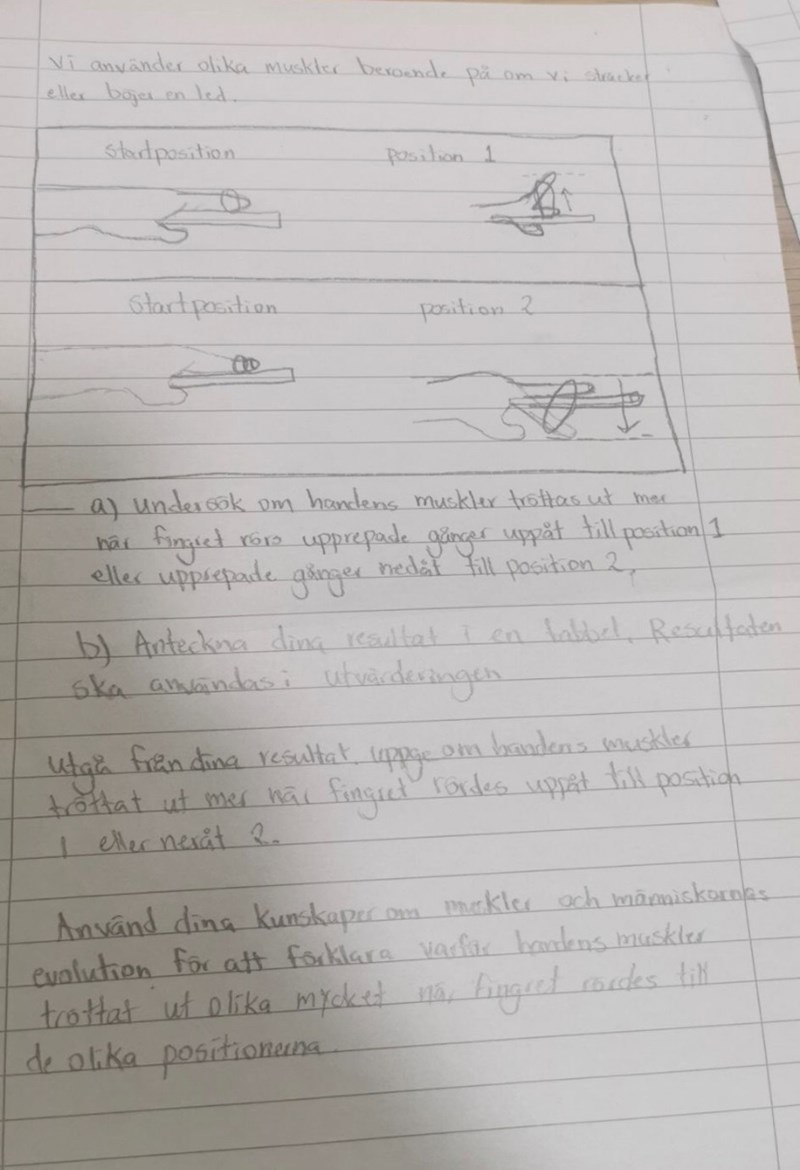 Vi använder olika muskler beroende på om vi sträcker
eller böjer en led.
Startposition position 1
Startposition position 2
a) undersök om handens muskler tröttas ut mer
när fingret rörs upprepade gånger uppåt till position 1
eller upprepade gånger nedåt till position 2,
b) Anteckna dina resultat i en tabbel. Resultaten
ska användas i utvärderingen
utgå från dina resultat. uppge om handens muskler
tröttat ut mer när fingret rördes uppåt till position
1 eller neråt 2.
Använd dina kunskaper om muskler och människornas
evolution för att förklara varför handens muskler
tröttat ut olika mycket när fingret rördes till
de olika positionerna.